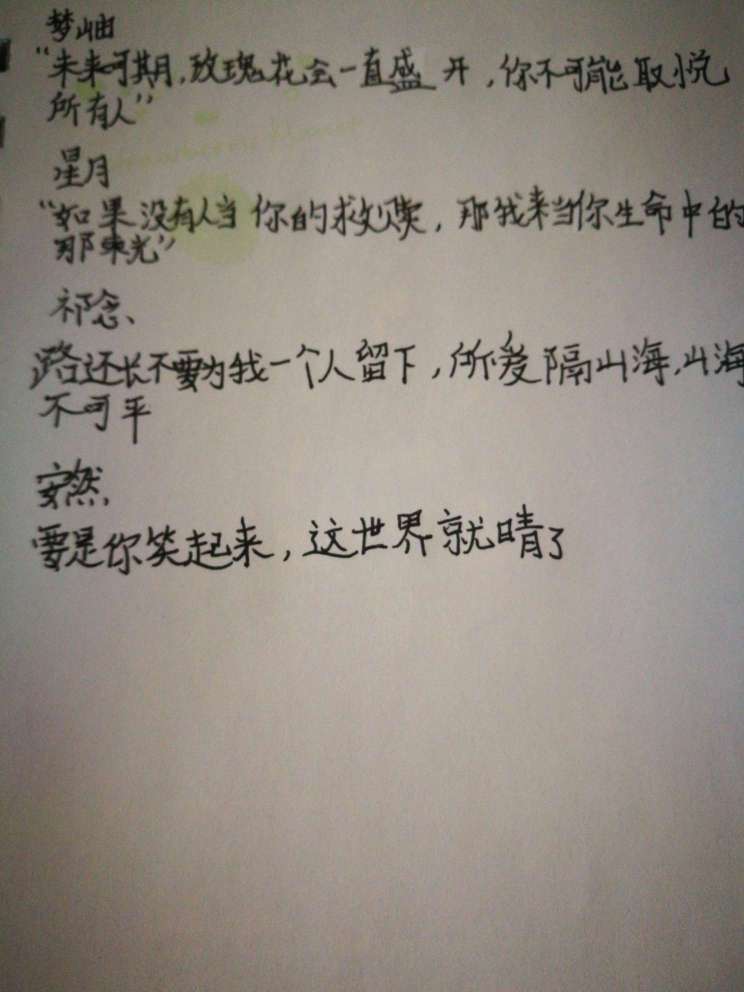 梦岫
“未来可期,玫瑰花会一直盛开,你不可能取悦
所有人”
星月
“如果没有人当你的救赎,那我来当你生命中的
那束光”
祁念、
路还长不要为我一个人留下,所爱隔山海,山海
不可平
安然,
要是你笑起来,这世界就晴了